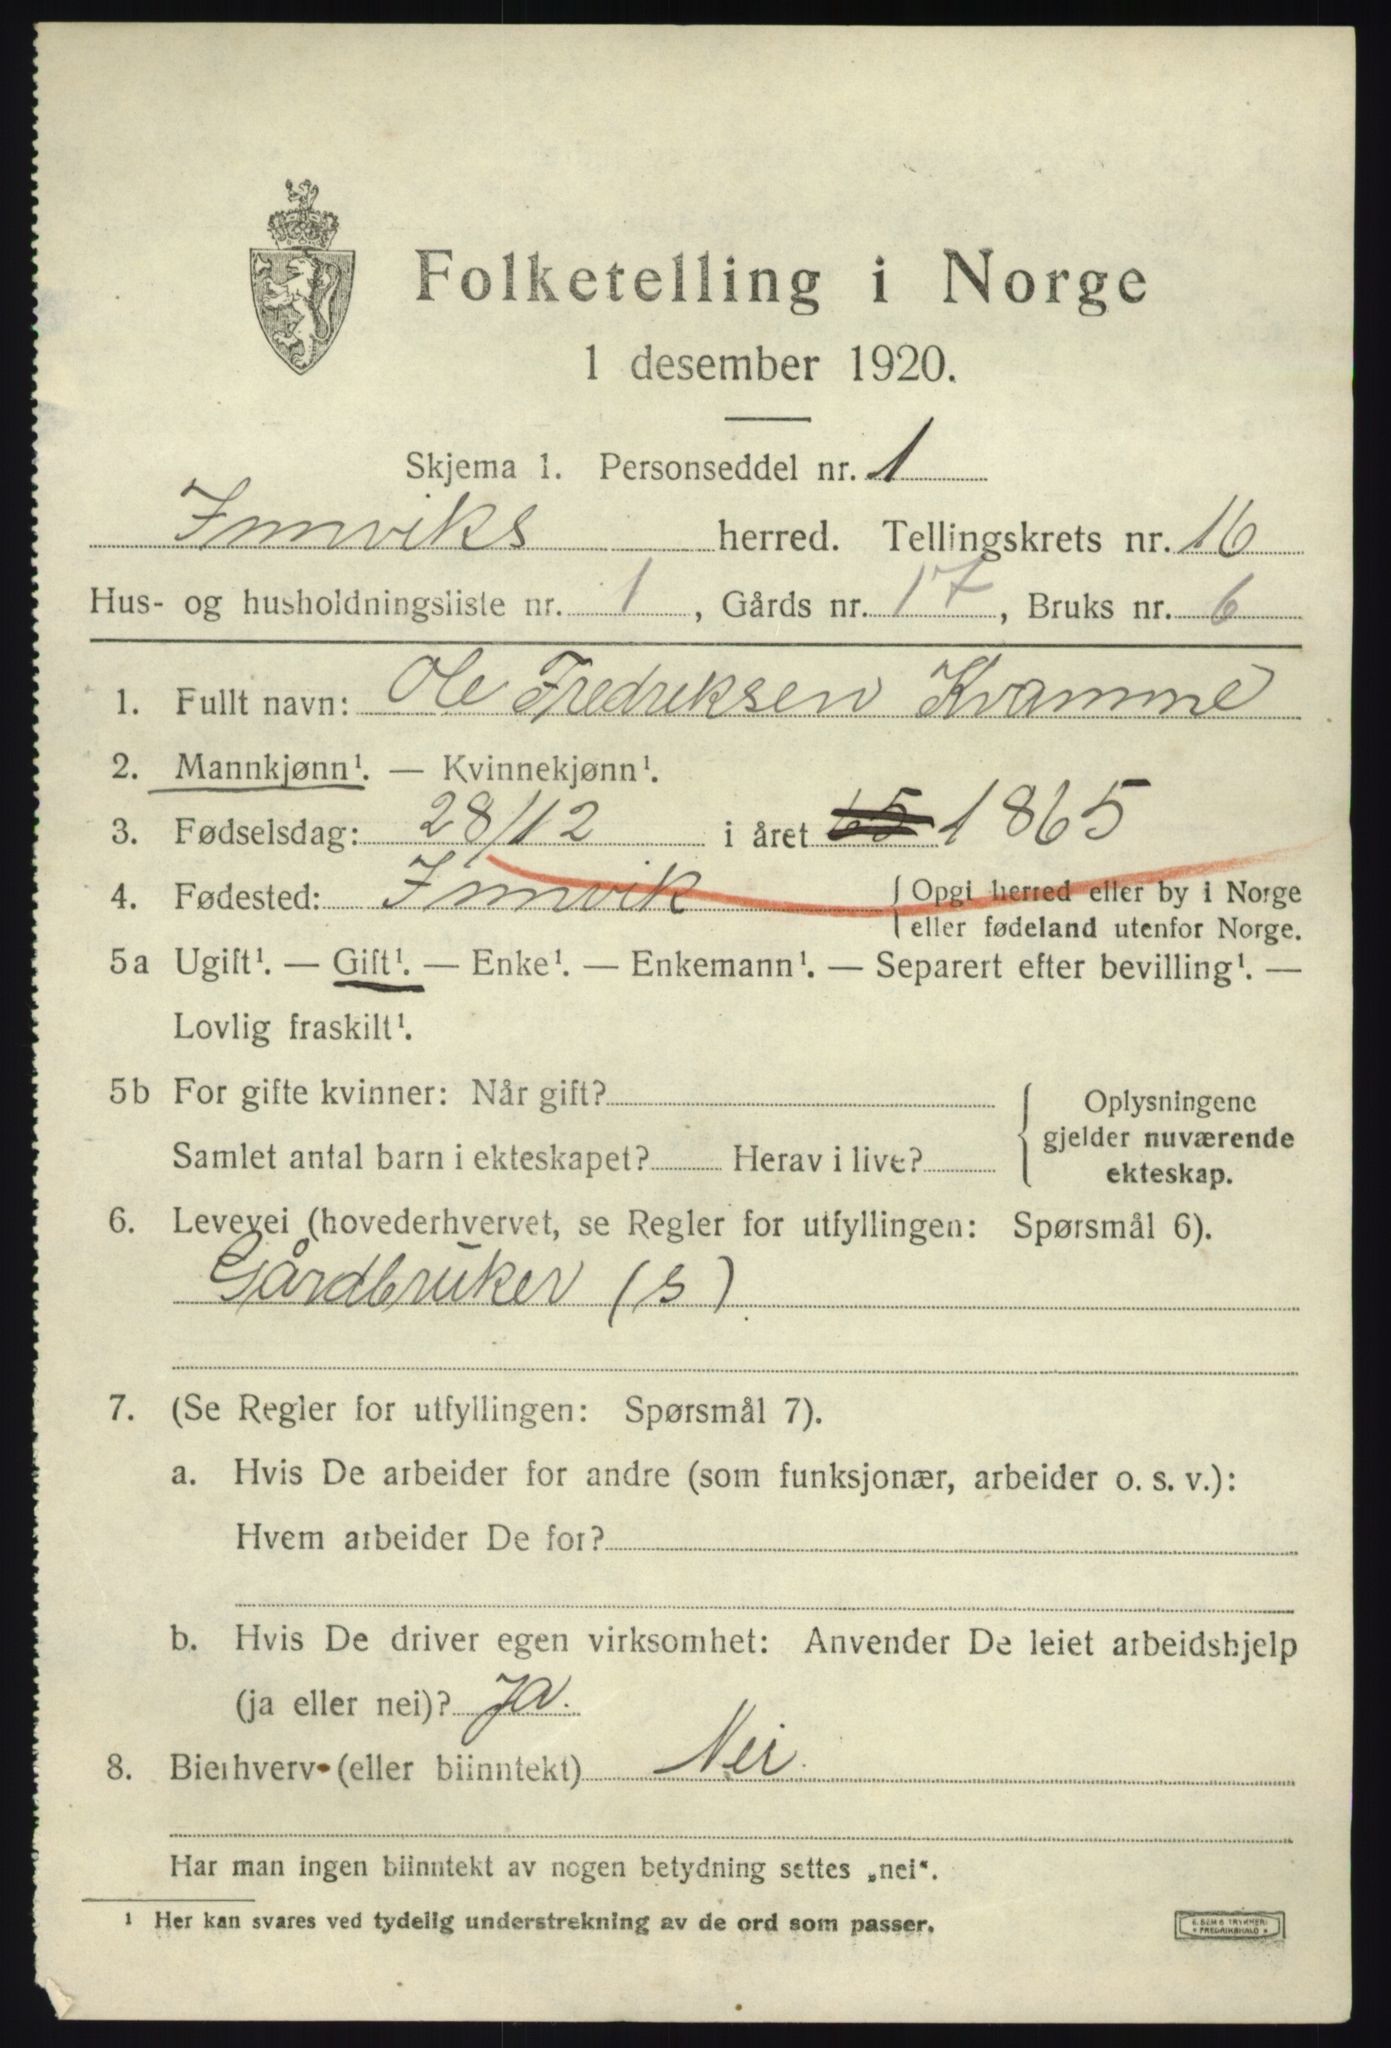 Folketelling i Norge
1 desember 1920.
Skjema 1. Personseddel nr. 1
Innviks herred. Tellingskrets nr. 16
Hus- og husholdningsliste nr. 1, Gårds nr. 17, Bruks nr. 6
1. Fullt navn: Ole Fredriksen Kvamme
2. Mannkjønn¹. — Kvinnekjønn¹.
3. Fødselsdag: 28/12 i året 65 1865
4. Fødested: Innvik { Opgi herred eller by i Norge
eller fødeland utenfor Norge.
5a Ugift¹. — Gift¹. — Enke¹. — Enkemann¹. — Separert efter bevilling¹. —
Lovlig fraskilt¹.
5b For gifte kvinner: Når gift?
Samlet antal barn i ekteskapet? Herav i live?
{ Oplysningene
gjelder nuværende
ekteskap.
6. Levevei (hovederhvervet, se Regler for utfyllingen: Spørsmål 6).
Gårdbruker (s)
7. (Se Regler for utfyllingen: Spørsmål 7).
a. Hvis De arbeider for andre (som funksjonær, arbeider o. s. v.):
Hvem arbeider De for?
b. Hvis De driver egen virksomhet: Anvender De leiet arbeidshjelp
(ja eller nei)? Ja.
8. Bierhverv (eller biinntekt) Nei.
Har man ingen biinntekt av nogen betydning settes „nei“.
¹ Her kan svares ved tydelig understrekning av de ord som passer.
E. SEMS TRYKKERI
* FREDRIKSHALD *